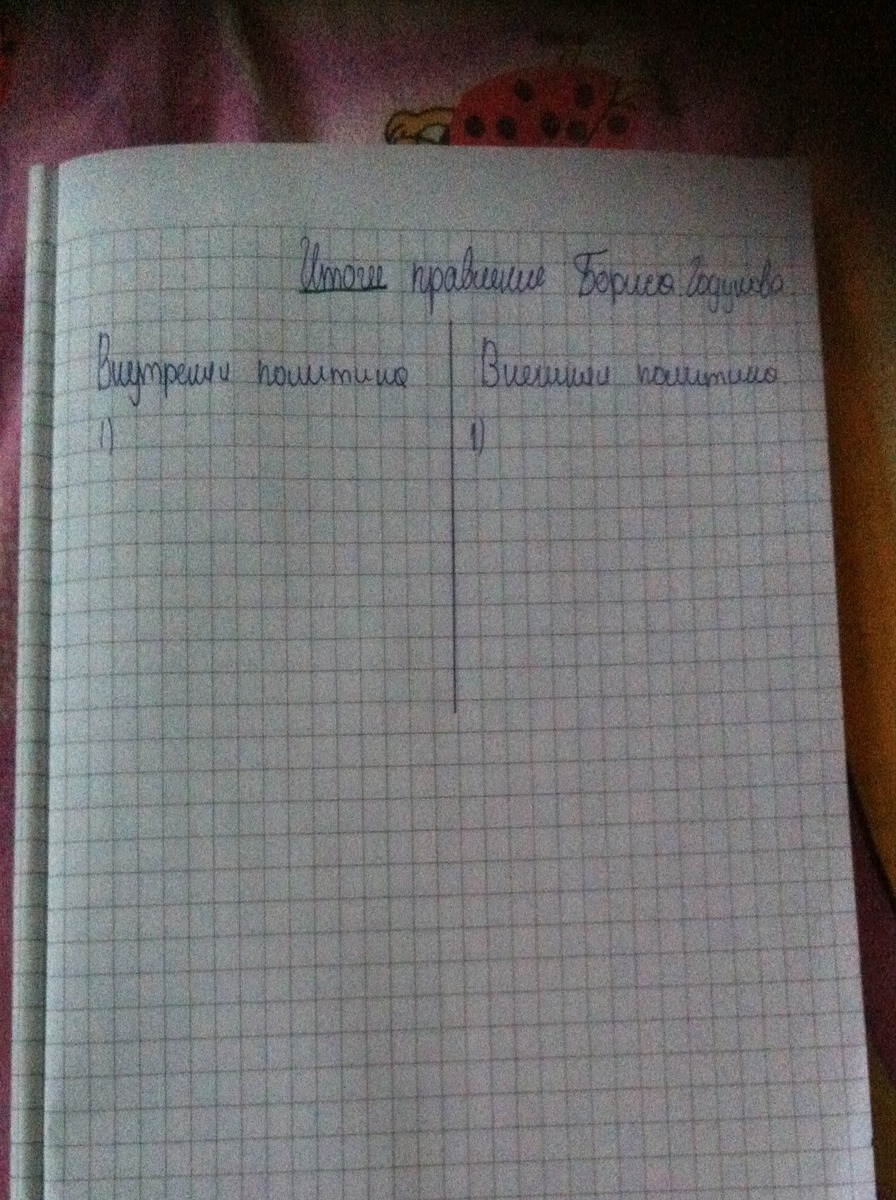 Итоги правления Бориса Годунова
Внутренняя политика
Внешняя политика
1)
1)